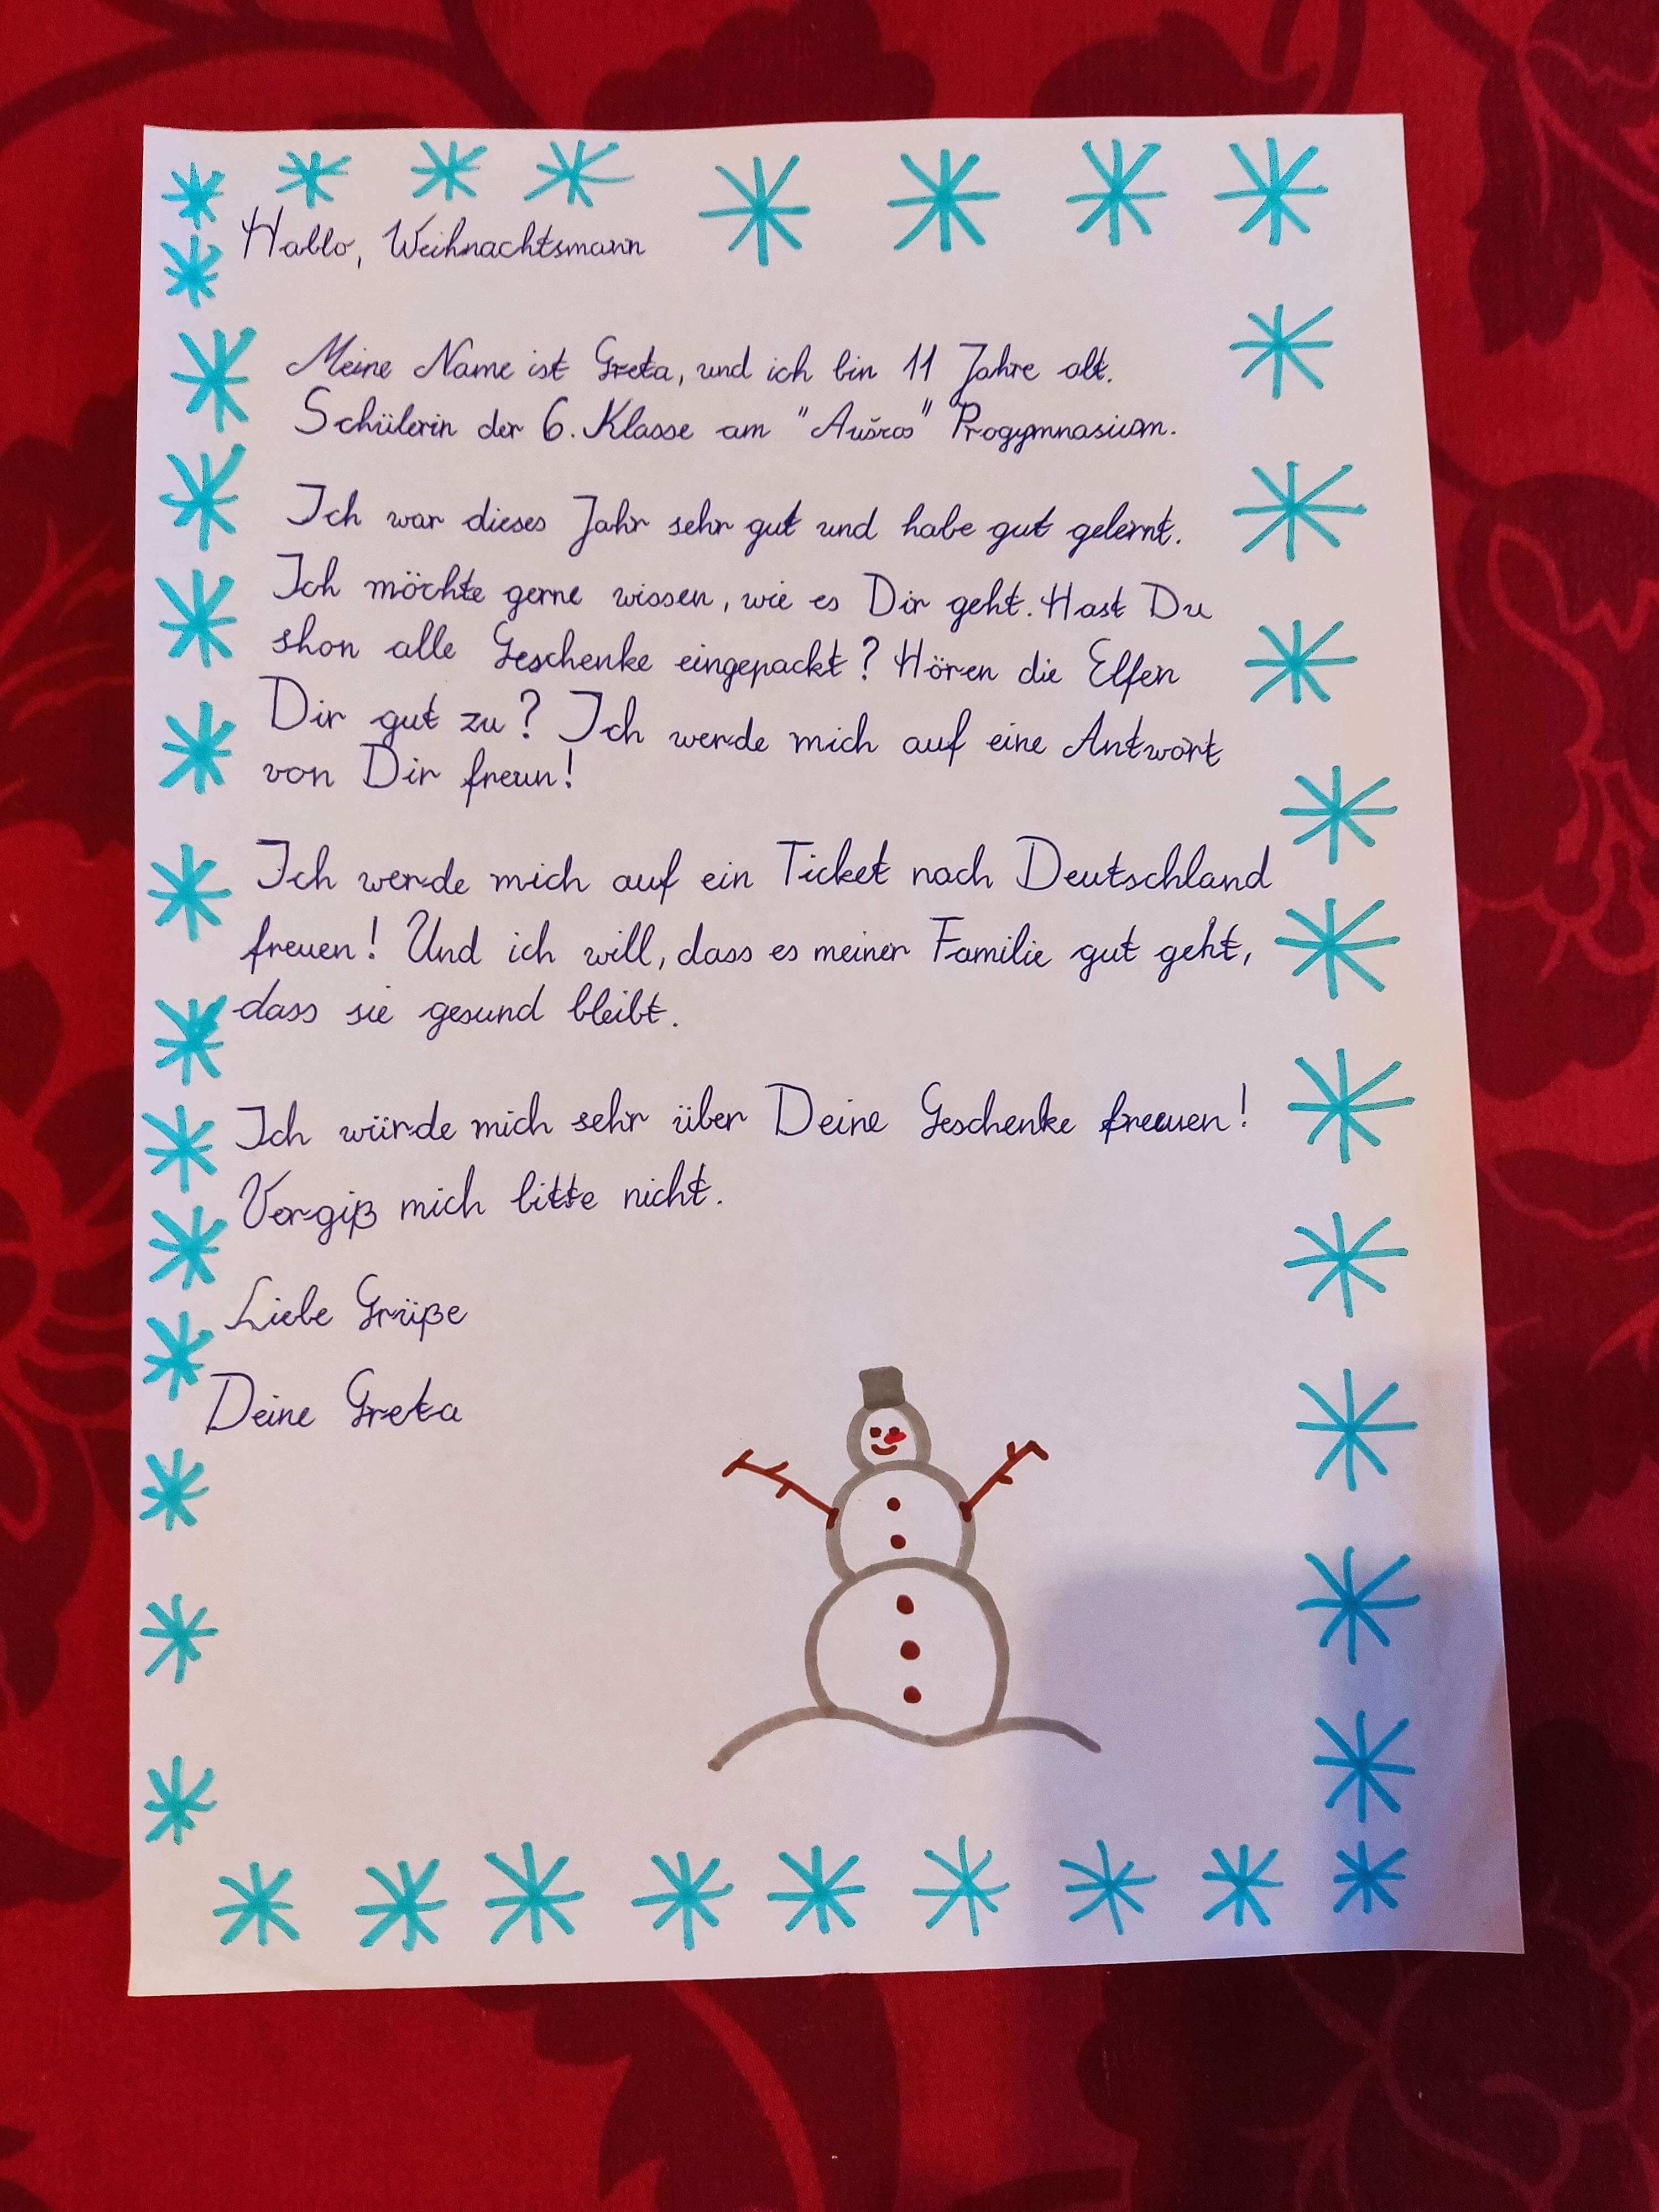 Hallo, Weihnachtsmann
Meine Name ist Greta, und ich bin 11 Jahre alt.
Schülerin der 6. Klasse am "Aušros" Progymnasium.
Ich war dieses Jahr sehr gut und habe gut gelernt.
Ich möchte gerne wissen, wie es Dir geht. Hast Du
shon alle Geschenke eingepackt? Hören die Elfen
Dir gut zu? Ich werde mich auf eine Antwort
von Dir freun!
Ich werde mich auf ein Ticket nach Deutschland
freuen! Und ich will, dass es meiner Familie gut geht,
dass sie gesund bleibt.
Ich würde mich sehr über Deine Geschenke freuen!
Vergiß mich bitte nicht.
Liebe Grüße
Deine Greta